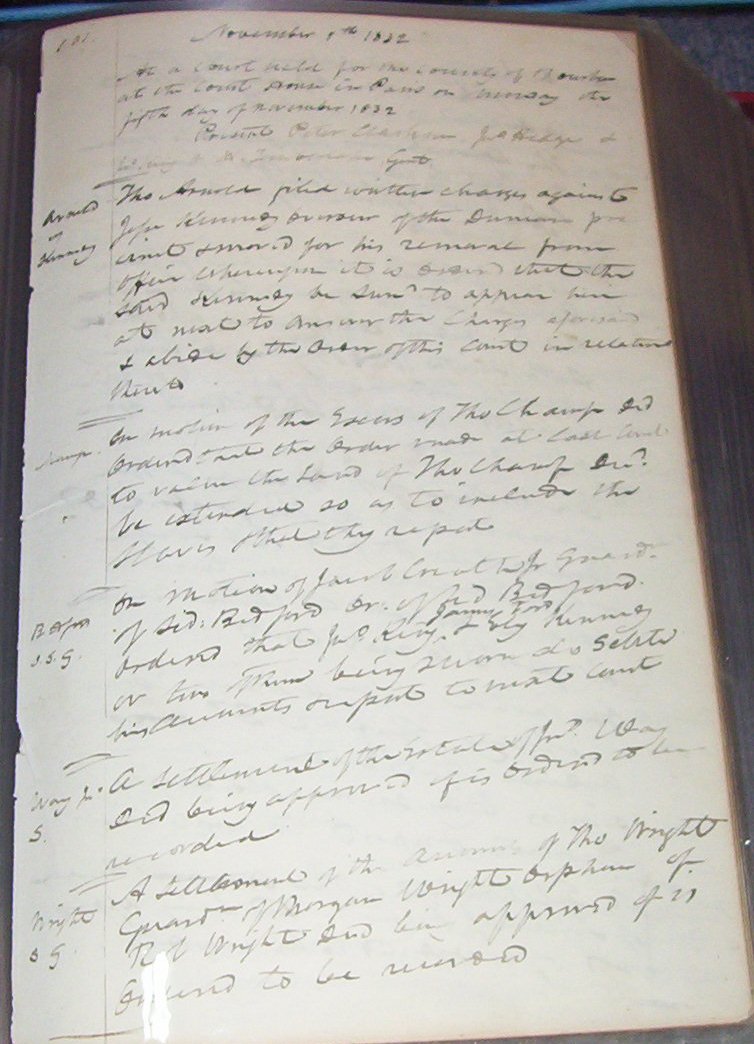 November 5th 1832
At a Court held for the County of Bourbon
at the Court House in Paris on Monday the
fifth day of November 1832
Present Peter Clarkson Jno Hedge &
Gent
Arnold
vs
Kenney
Tho Arnold filed written charges against
Jesse Kenney Surveyor of the Duncan pre
cinct & moved for his removal from
office whereupon it is ordered that the
said Kenney be Sumd to appear here
at next to answer the Charges aforesaid
& abide by the order of this Court in relation
thereto
Champ
On motion of the Execrs of Tho Champ Decd
Ordered that the order made at last Court
to value the Land of Tho Champ Decd
be extended so as to include the
Slaves & that they report
Bedford
S. G.
On motion of Jacob Jr Guard.
of Sid: Bedford Or. of Bedford.
Ordered that Jno King, & Kenney
or two of them being sworn do Settle
his Accounts & report to next Court
Way Jno
S.
A Settlement of the Estate of Jno Way
Decd being approved of is ordered to be
recorded
Wright
S G
A Settlement of the Accounts of Tho Wright
Guardn of Morgan Wright Orphan of
Wright Decd being approved of is
Ordered to be recorded